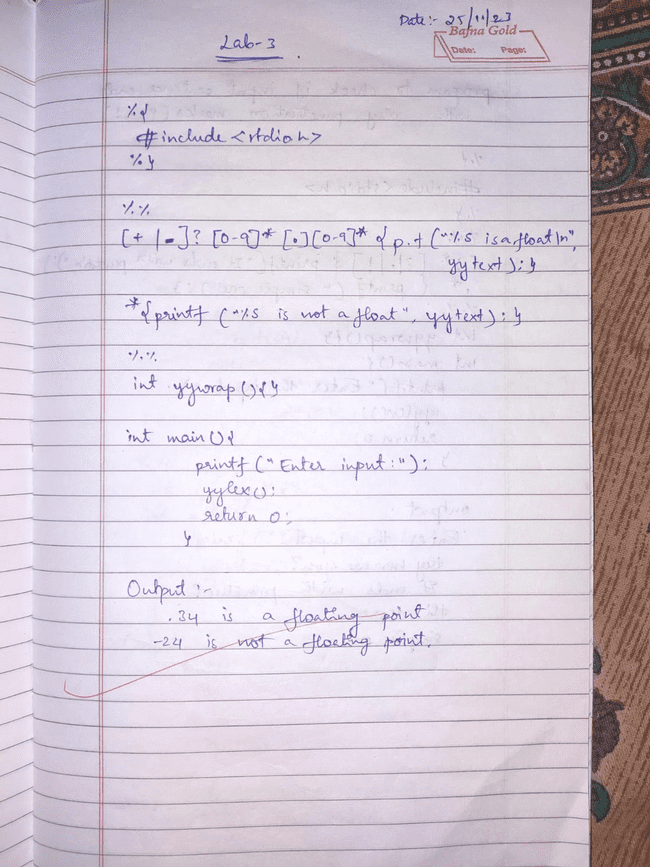 Date:- 25/11/23
Bafna Gold
Date: Page:
Lab-3
%{
#include <stdio h>
%}
%%
[+|-]? [0-9]* [.][0-9]* { p.f ("%s is a float\n",
yytext); }
*{printf ("%s is not a float", yytext); }
%%
int yywrap(){}
int main(){
printf ("Enter input:");
yylex();
return 0;
}
Output :-
.34 is a floating point
-24 is not a floating point.